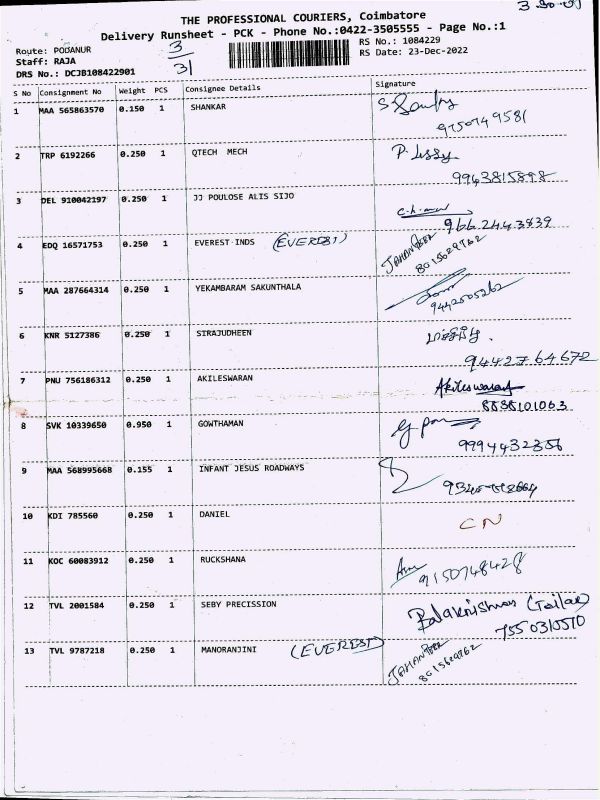 THE PROFESSIONAL COURIERS, Coimbatore
Delivery Runsheet - PCK - Phone No.:0422-3505555 - Page No.:1
Route: PODANUR 3 RS No.: 1084229
Staff: RAJA 31 RS Date: 23-Dec-2022
DRS No.: DCJB108422901
S No Consignment No Weight PCS Consignee Details Signature
1 MAA 565863570 0.150 1 SHANKAR
9750749581
2 TRP 6192266 0.250 1 QTECH MECH
9943815898
3 DEL 910042197 0.250 1 JJ POULOSE ALIS SIJO
966 2443839
4 EDQ 16571753 0.250 1 EVEREST INDS (EVEREST) JAHANGEER
8015629762
5 MAA 287664314 0.250 1 YEKAMBARAM SAKUNTHALA
9442505262
6 KNR 5127386 0.250 1 SIRAJUDHEEN
9442764672
7 PNU 756186312 0.250 1 AKILESWARAN Akileswaran
8838101063
8 SVK 10339650 0.950 1 GOWTHAMAN
9994432356
9 MAA 568995668 0.155 1 INFANT JESUS ROADWAYS
10 KDI 785560 0.250 1 DANIEL CN
11 KOC 60083912 0.250 1 RUCKSHANA
9150748428
12 TVL 2001584 0.250 1 SEBY PRECISSION Balakrishnan (Tailor)
7550310570
13 TVL 9787218 0.250 1 MANORANJINI (EVEREST) JAHANGEER
8015629762